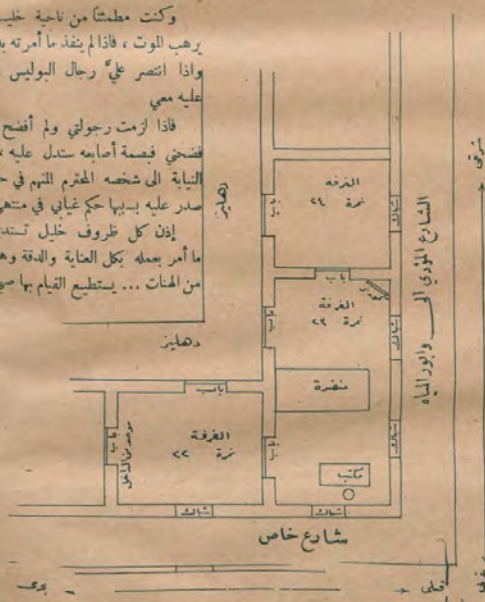 وكنت مطمئنًا من ناحية خليـ
يرهب الموت ، فاذا لم ينفذ ما أمرته بـ
واذا انتصر عليّ رجال البوليس
عليه معي
فاذا لزمت رجولتي ولم أفضح
فضحني فبصمة أصابعه ستدل عليه
النيابة الى شخصه المحترم المتهم في
صدر عليه بسببها حكم غيابي في منتهى
إذن كل ظروف خليل تستد
ما أمر بعمله بكل العناية والدقة وهـ
من الهنات ... يستطيع القيام بها صبـ
دهليز
الغرفة
نمرة ٢٤
باب
شباك
باب
الغرفة
نمرة ٢٣
باب
شباك
دهليز
منضدة
باب
الغرفة
نمرة ٢٢
باب
باب
من الداخل
شباك
شباك
مكتب
شباك
شارع خاص
الشارع المؤدي الى وابور المياه
شرقى
غربى
قبلى
بحرى